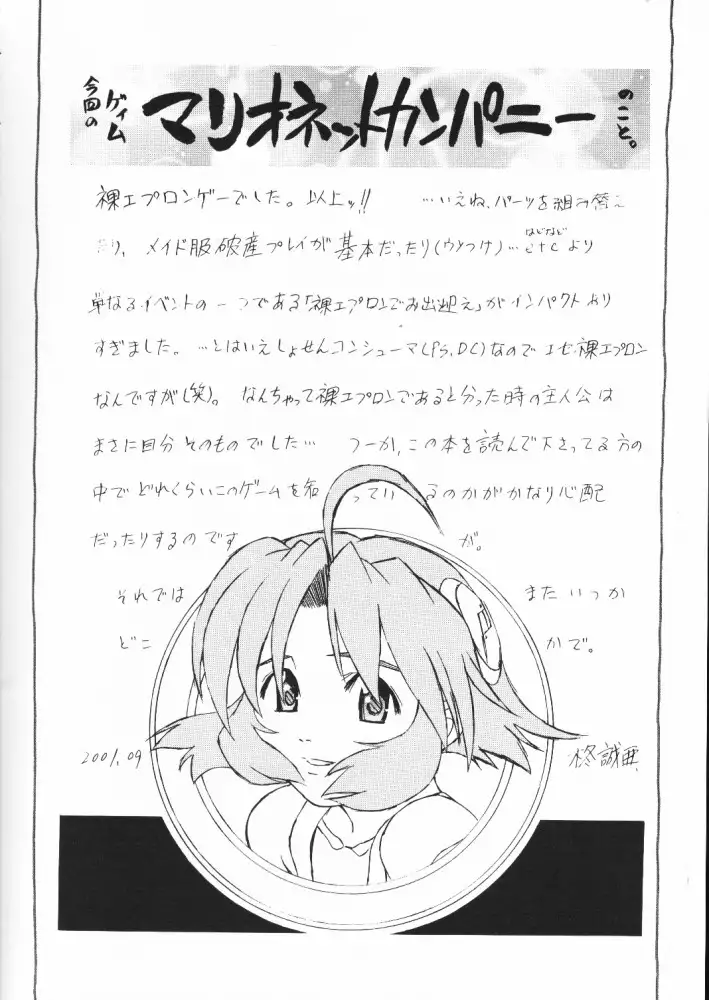 今回の
ゲイム
マリオネットカンパニー
のこと。
裸エプロンゲーでした。以上ッ!! …いえね、パーツを組み替え
たり、メイド服破産プレイが基本だったり(ウソつけ)…etcより
はどなど
単なるイベントの一つである「裸エプロンでお出迎え」がインパクトより
すぎました。…とはいえしょせんコンシューマ(PS,DC)なのでエセ裸エプロン
なんですが(笑)。なんちゃって裸エプロンであると分った時の主人公は
まさに自分そのものでした… つーか、この本を読んで下さってる方の
中でどれくらいこのゲームを知っているのかがかなり心配
だったりするのですが。
それではまたいつか
どこかで。
2001.09
柊誠亜